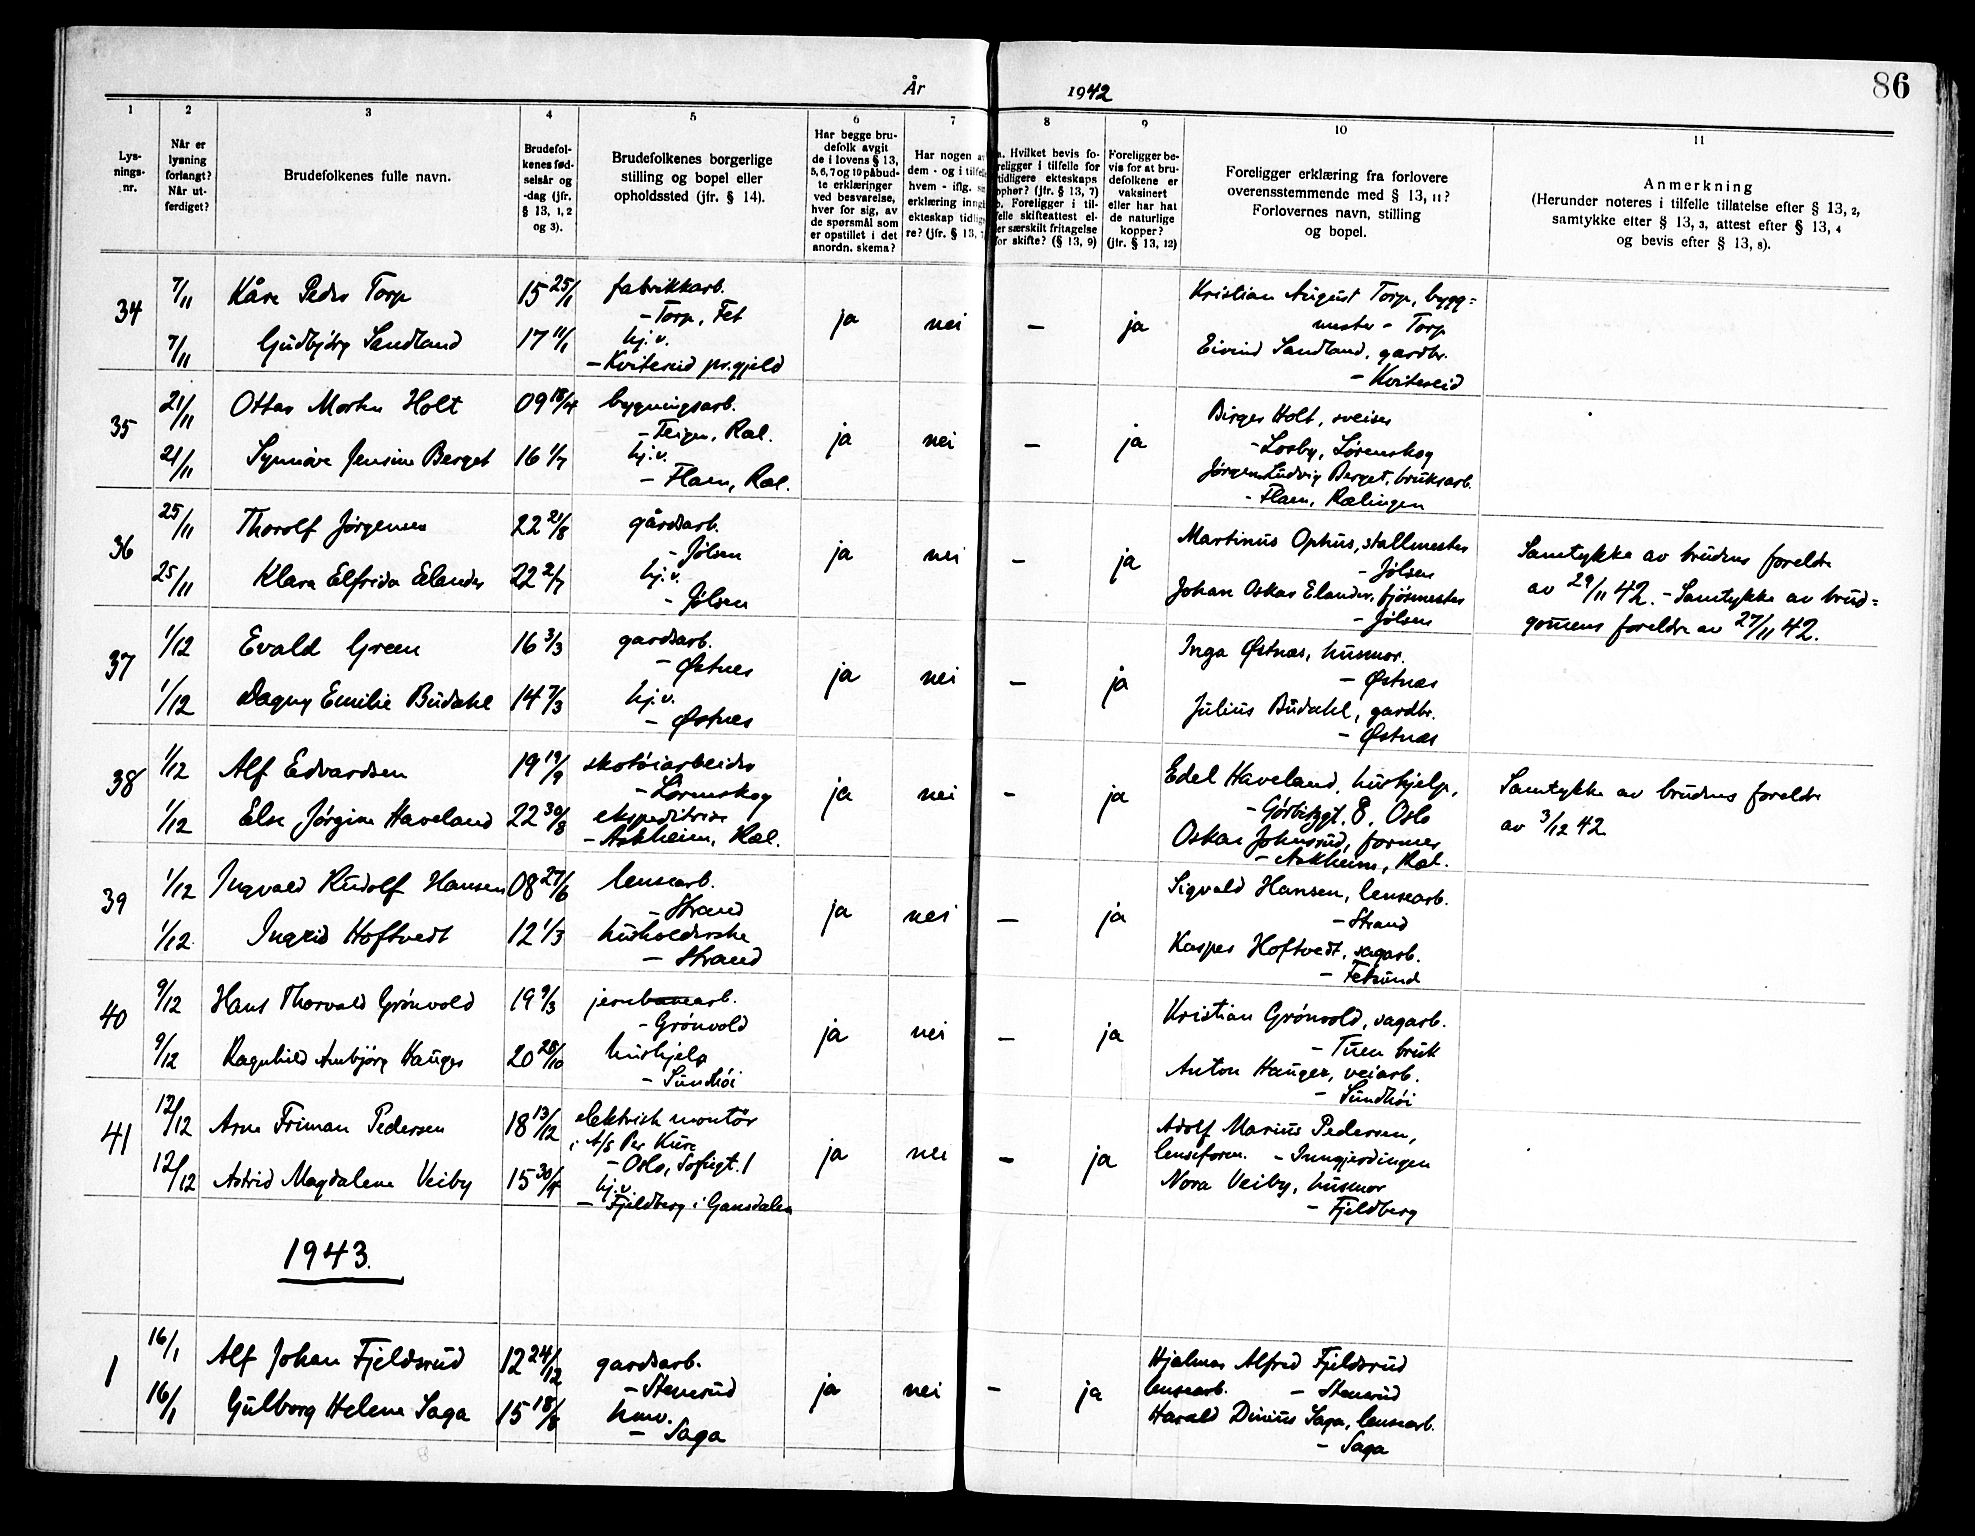 86
År 1942
1 2 3 4 5 6 7 8 9 10 11
Lys-
nings-
nr.
Når er
lysning
forlangt?
Når ut-
ferdiget?
Brudefolkenes fulle navn.
Brudefol-
kenes fød-
selsår og
-dag (jfr.
§ 13, 1, 2
og 3).
Brudefolkenes borgerlige
stilling og bopel eller
opholdssted (jfr. § 14).
Har begge bru-
defolk avgit
de i lovens § 13,
5, 6, 7 og 10 påbud-
te erklæringer
ved besvarelse,
hver for sig, av
de spørsmål som
er opstillet i det
anordn. skema?
Har nogen av
dem - og i tilfelle
hvem - iflg. 
erklæring inng
ekteskap tidlig
re? (jfr. § 13,
a. Hvilket bevis fo-
religger i tilfelle for
tidligere ekteskaps
ophør? (jfr. § 13, 7)
b. Foreligger i til-
felle skifteattest el-
ler særskilt fritagelse
for skifte? (§ 13, 9)
Foreligger be-
vis for at bru-
defolkene er
vaksinert
eller har hat
de naturlige
kopper?
(jfr. § 13, 12)
Foreligger erklæring fra forlovere
overensstemmende med § 13, 11?
Forlovernes navn, stilling
og bopel.
Anmerkning
(Herunder noteres i tilfelle tillatelse efter § 13, 2,
samtykke efter § 13, 3, attest efter § 13, 4
og bevis efter § 13, 8).
34
7/11 Kåre Peder Torp 15 25/1 fabrikkarb.
- Torp, Fet
7/11 Gudbjörg Sandland 17 11/1 hj.v.
- Kviteseid pr.gjeld
ja nei - ja
Kristian August Torp, bygg=
mester - Torp
Eivind Sandland, gardbr.
- Kviteseid
35
21/11 Ottar Morten Holt 09 18/4 bygningsarb.
- Teigen, Ræl.
21/11 Synnøve Jensine Berget 16 1/7 hj.v.
- Flaen, Ræl.
ja nei - ja
Birger Holt, sveiser
- Losby, Lørenskog
Jørgen Ludvig Berget, bruksarb.
- Flaen, Rælingen
36
25/11 Thorolf Jørgensen 22 21/8 gårdsarb.
- Jølsen
25/11 Klara Elfrida Elander 22 2/7 hj.v.
- Jølsen
ja nei - ja
Martinus Ophus, stallmester
- Jølsen
Johan Oskar Elander, fjösmester
- Jølsen
Samtykke av brudens foreldre
av 29/11 42. - Samtykke av brud=
gomens foreldre av 27/11 42.
37
1/12 Evald Green 16 3/3 gardsarb.
- Østnes
1/12 Dagny Emilie Budahl 14 7/3 hj.v.
- Østnes
ja nei - ja
Inga Østnæs, husmor.
- Østnæs
Julius Budahl, gardbr.
- Østnæs
38
1/12 Alf Edvardsen 19 19/9 skotøiarbeider
- Lørenskog
1/12 Else Jørgine Haveland 22 30/8 ekspeditrise
- Askheim, Ræl.
ja nei - ja
Edel Haveland, hushjelp,
- Görbitzgt. 8, Oslo
Oskar Johnsrud, former
- Askheim, Ræl.
Samtykke av brudens foreldre
av 3/12 42.
39
1/12 Ingvald Rudolf Hansen 08 27/6 lensearb.
- Strand
1/12 Ingrid Hoftvedt 12 1/3 husholderske
- Strand
ja nei - ja
Sigvald Hansen, lensearb.
- Strand
Kasper Hoftvedt, sagarb.
- Fetsund
40
9/12 Hans Thorvald Grönvold 19 9/3 jernbanearb.
- Grönvold
9/12 Ragnhild Ambjörg Hauger 20 28/10 hushjelp
- Sundhöi
ja nei - ja
Kristian Grönvold, sagarb.
- Tuen bruk
Anton Hauger, veiarb.
- Sundhöi
41
12/12 Arne Friman Pedersen 18 13/12 elektrisk montør
i A/S Per Kure
- Oslo, Sofiegt. 1
12/12 Astrid Magdalene Veiby 15 30/4 hj.v.
- Fjeldberg i Gansdalen
ja nei - ja
Adolf Marius Pedersen,
lenseform. - Inngjerdingen
Nora Veiby, husmor
- Fjeldberg
1943.
1
16/1 Alf Johan Fjeldsrud 12 24/12 gardsarb.
- Stensrud
16/1 Gulborg Helene Saga 15 18/8 hmv.
- Saga
ja nei - ja
Hjalmar Alfred Fjeldsrud
lensearb. - Stensrud
Harald Dinius Saga, lensearb.
- Saga